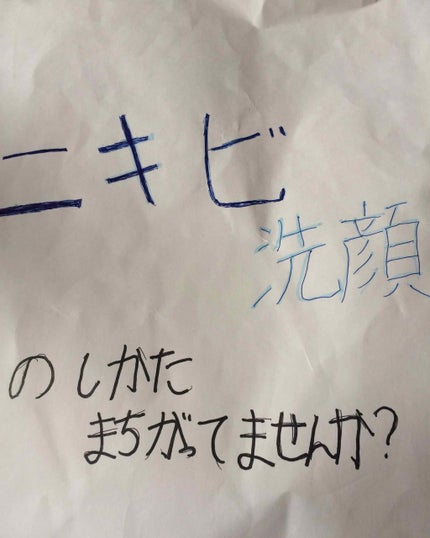 ニキビ
洗顔
のしかた
まちがってませんか?